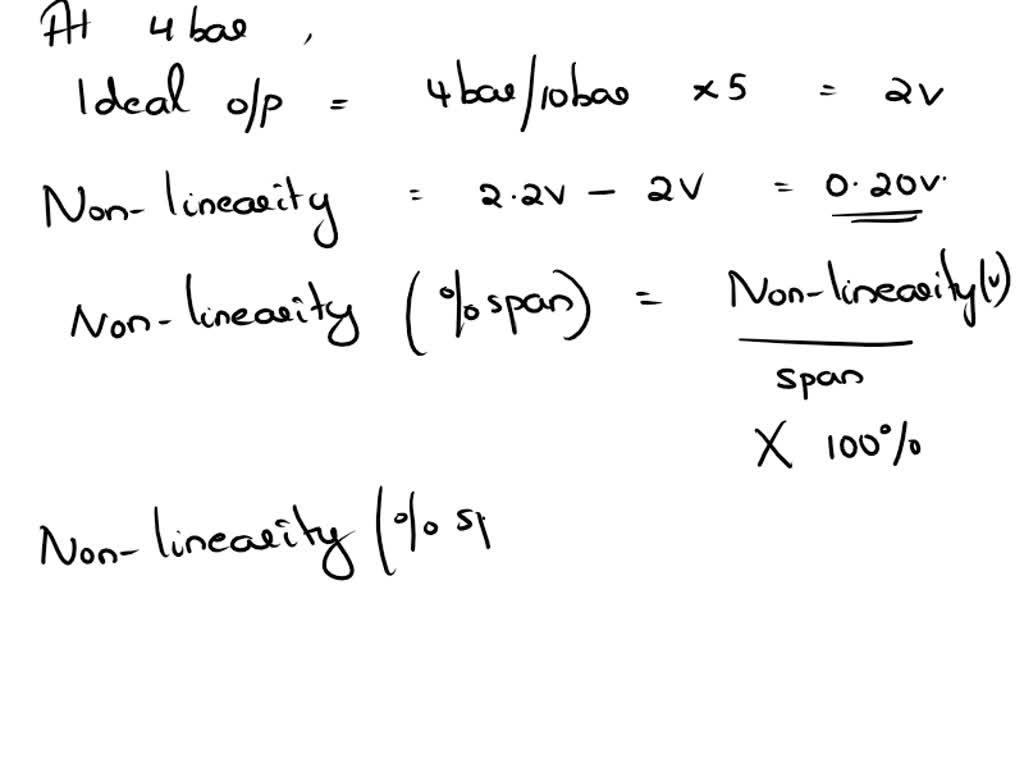 At 4 bar,
Ideal o/p = 4bar/10bar × 5 = 2v
Non-linearity = 2.2v - 2V = 0.20v.
Non-linearity (% span) = Non-linearity(v)
span
X 100%
Non-linearity (% sp